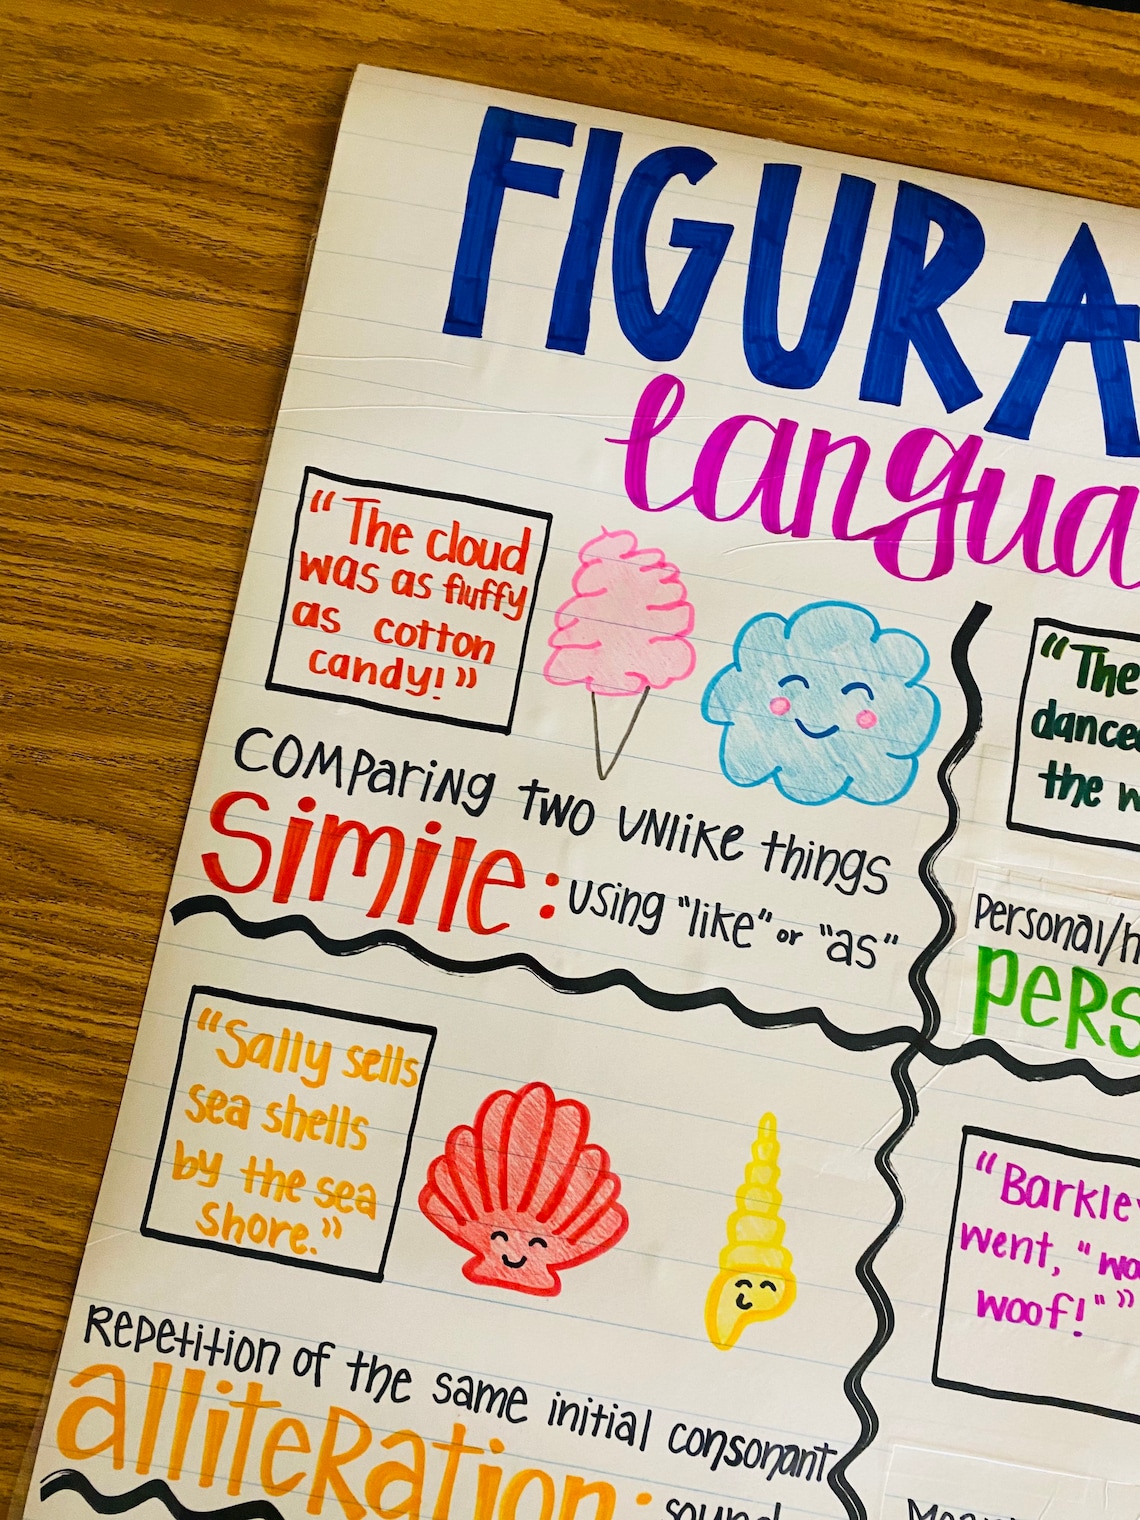 FIGURA
langua
"The cloud
was as fluffy
as cotton
candy!"
Comparing two unlike things
Simile: using "like" or "as"
"The
dance
the w
Personal/h
Pers
"Sally sells
sea shells
by the sea
shore."
Repetition of the same initial consonant
alliteration: sound
"Barkley
went, "wo
woof!""